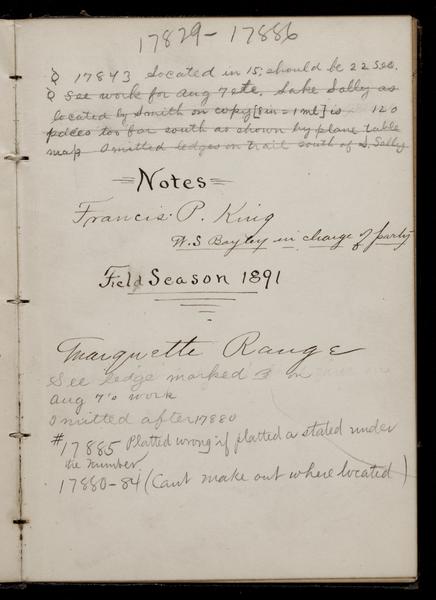 17829 - 17886
17843 Located in 15; should be 22 Sec.
See work for Aug 7 etc. Lake Sally as
located by Smith on copy [8 in = 1 ml] is 120
paces too far south as shown by plane table
map Omitted ledges on trail south of L. Sally
Notes
Francis P. King
W.S Bayley in charge of party
Field Season 1891
Marquette Range
See ledge marked 3 on
Aug 7's work
Omitted after 17880
#17885 Platted wrong if platted a stated under
the number
17880-84 (Cant make out where located)